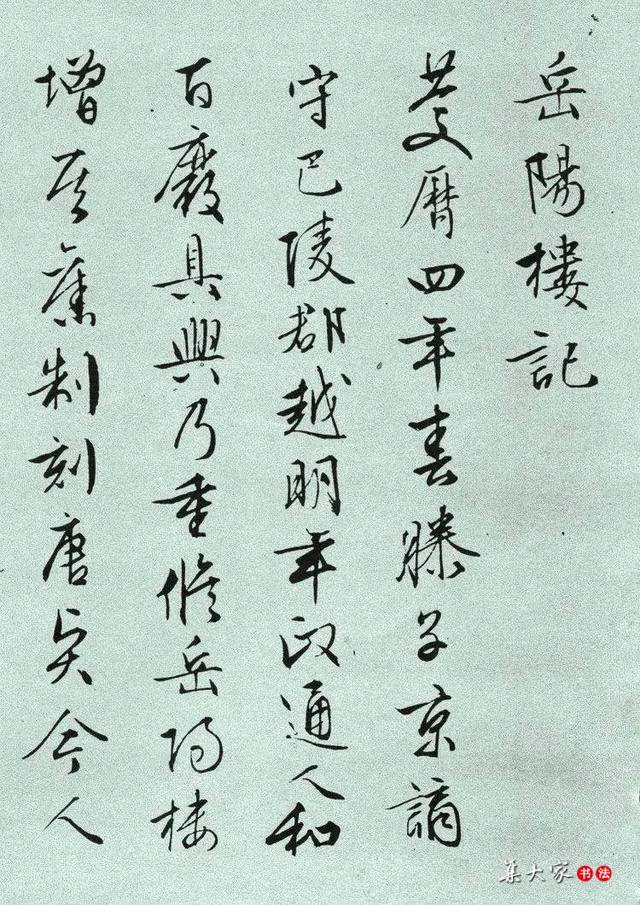 岳陽樓記
慶曆四年春滕子京謫
守巴陵郡越明年政通人和
百廢具興乃重修岳陽楼
增其舊制刻唐賢今人
集大家书法